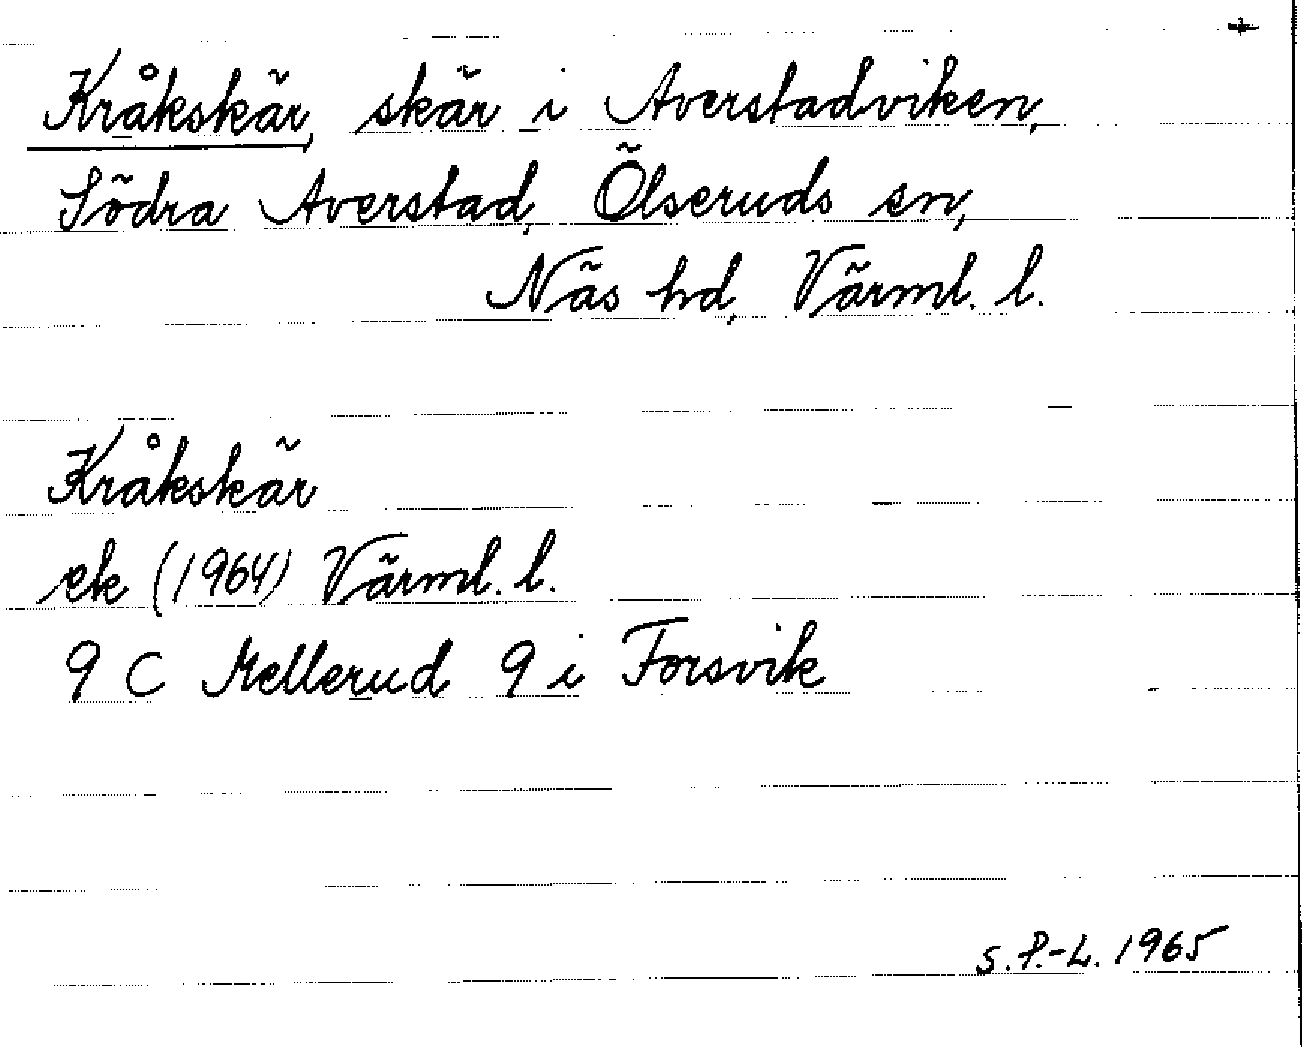 Kråkskär, skär i Averstadviken,
Södra Averstad, Ölseruds sn,
Näs hd, Värml. l.
Kråkskär
ek (1964) Värml. l.
9 C Mellerud 9 i Forsvik
S. P.-L. 1965